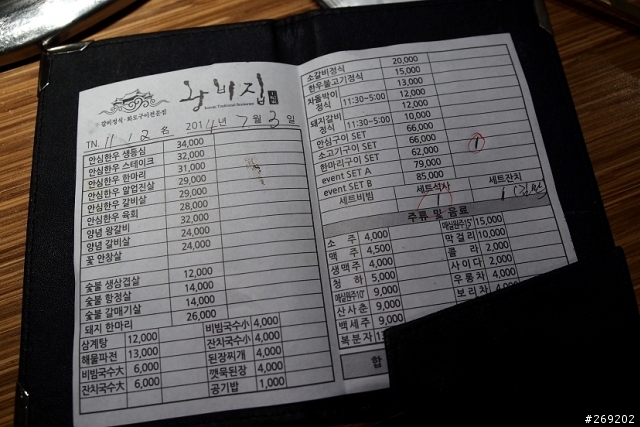 왕비집
갈비정식·화로구이전문점
TN. 11 12 名 2014년 7월 3일
안심한우 생등심 34,000
안심한우 스테이크 32,000
안심한우 한마리 31,000
안심한우 알업진살 29,000
안심한우 갈비살 29,000
안심한우 육회 28,000
양념 왕갈비 32,000
양념 갈비살 24,000
꽃 안창살 24,000
숯불 생삼겹살 12,000
숯불 항정살 14,000
숯불 갈매기살 14,000
돼지 한마리 26,000
삼계탕 12,000 비빔국수小 4,000
해물파전 13,000 잔치국수小 4,000
비빔국수大 6,000 된장찌개 4,000
잔치국수大 6,000 깻묵된장 4,000
공기밥 1,000
소갈비정식 20,000
한우불고기정식 15,000
차돌박이 정식 11:30~5:00 13,000
12,000
돼지갈비 정식 11:30~5:00 12,000
10,000
안심구이 SET 66,000
소고기구이 SET 66,000
한마리구이 SET 62,000
event SET A 79,000
event SET B 85,000
세트비빔 세트식사 세트잔치
1 1
주류 및 음료
소주 4,000 매실원주(5) 15,000
맥주 4,500 막걸리 10,000
생맥주 4,000 콜라 2,000
청하 5,000 사이다 2,000
매실원주(10) 9,000 우롱차 4,000
산사춘 9,000 보리차 4
백세주 9,000
복분자 1
합
#269202